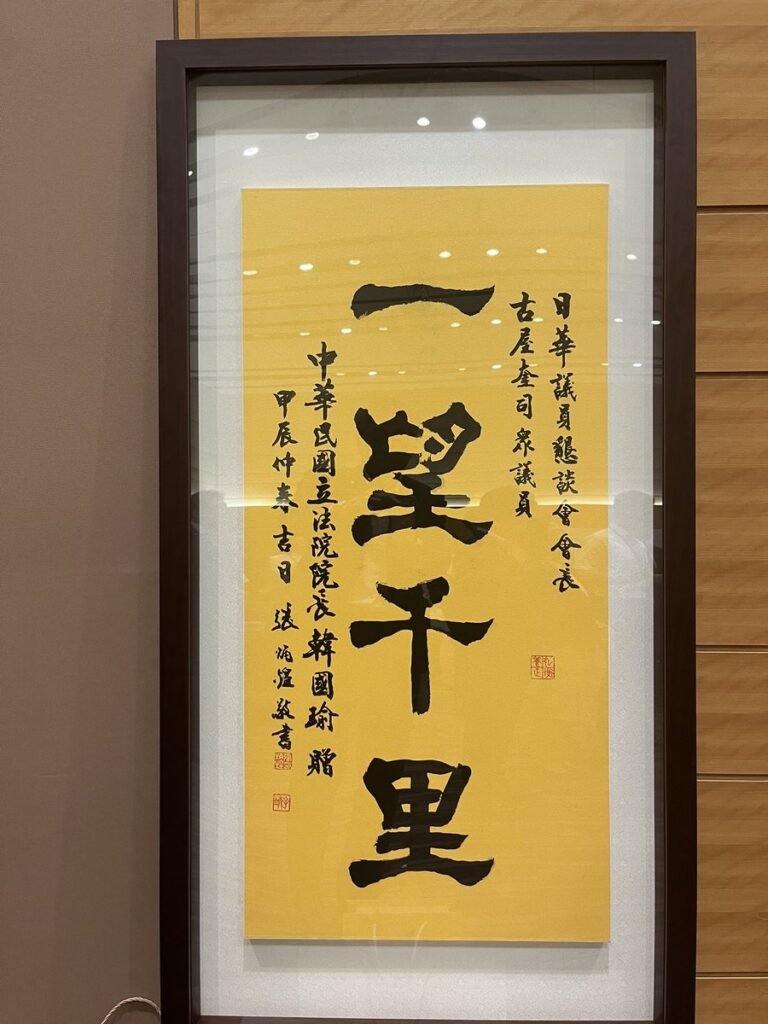 日華議員懇談會會長
古屋奎司衆議員
一望千里
中華民國立法院院長韓國瑜 贈
甲辰仲春吉日 張炳煌敬書